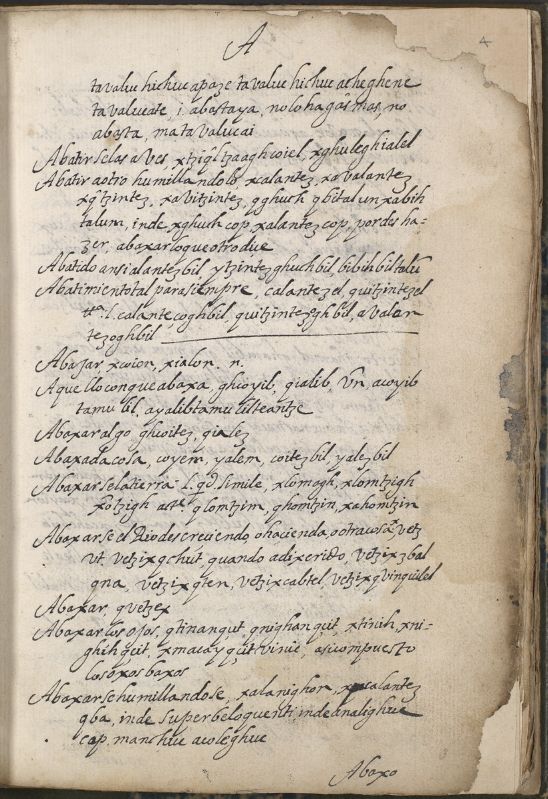 A
4
tavalue hichiue apaze tavalue hichiue acheghene
tavalueate, i, abastaya, no lo hagas mas, no
abasta, matavalueai
Abatirse las aves, xtziqÌltzaagh coiel, xghuleghialel
Abatir a otro humillandolo, xcalantez, xavalantez
xqÌtzintez, xavitzintez, qghuch qbital un xabih
talum, inde, xghuch cop, xalantez cop, por des ha=
zer, abaxar lo que otro due
Abatido ansi alantezbil, ytzintezghuchbil, bibihbiltalū
Abatimiento tal para siempre, calantezel, quitzintezel
calantezoghbil, quitzintezoghbil, avalan
tezoghbil
Abajar, xcoion, xialon. n.
Aquello con que abaxa, ghcoyib, gialib, Vn, acoyib
tamubil, ayalibtamu
Abaxar algo ghcoitez, gialez
Abaxada cosa, coyem, yalem, coitezbil, yalezbil
Abaxarse la tierra l. qd simile, xlomogh, xlomtzigh
qlomtzim, ghomtzin, xahomtzin
Abaxarse el Rio descreciendo, o hacienda, o otra cosa, vetz
vt, vetzix qchuit, quando adixerido, vetzix zbal
qna, vetzix qten, vetzix cabtel, vetzix qvinquilel
Abaxar, qvetzex
Abaxar los ojos, qtinanqut, qnighanqut, xtinih, xni-
ghih qut, xmacay qut vinic, asi compuesto
los oxos baxos
Abaxarse humillandose, xalanighon, xcalantez
qba, inde superbe loquenti inde analighue
cop, manchiue acoleghue
Abaxo